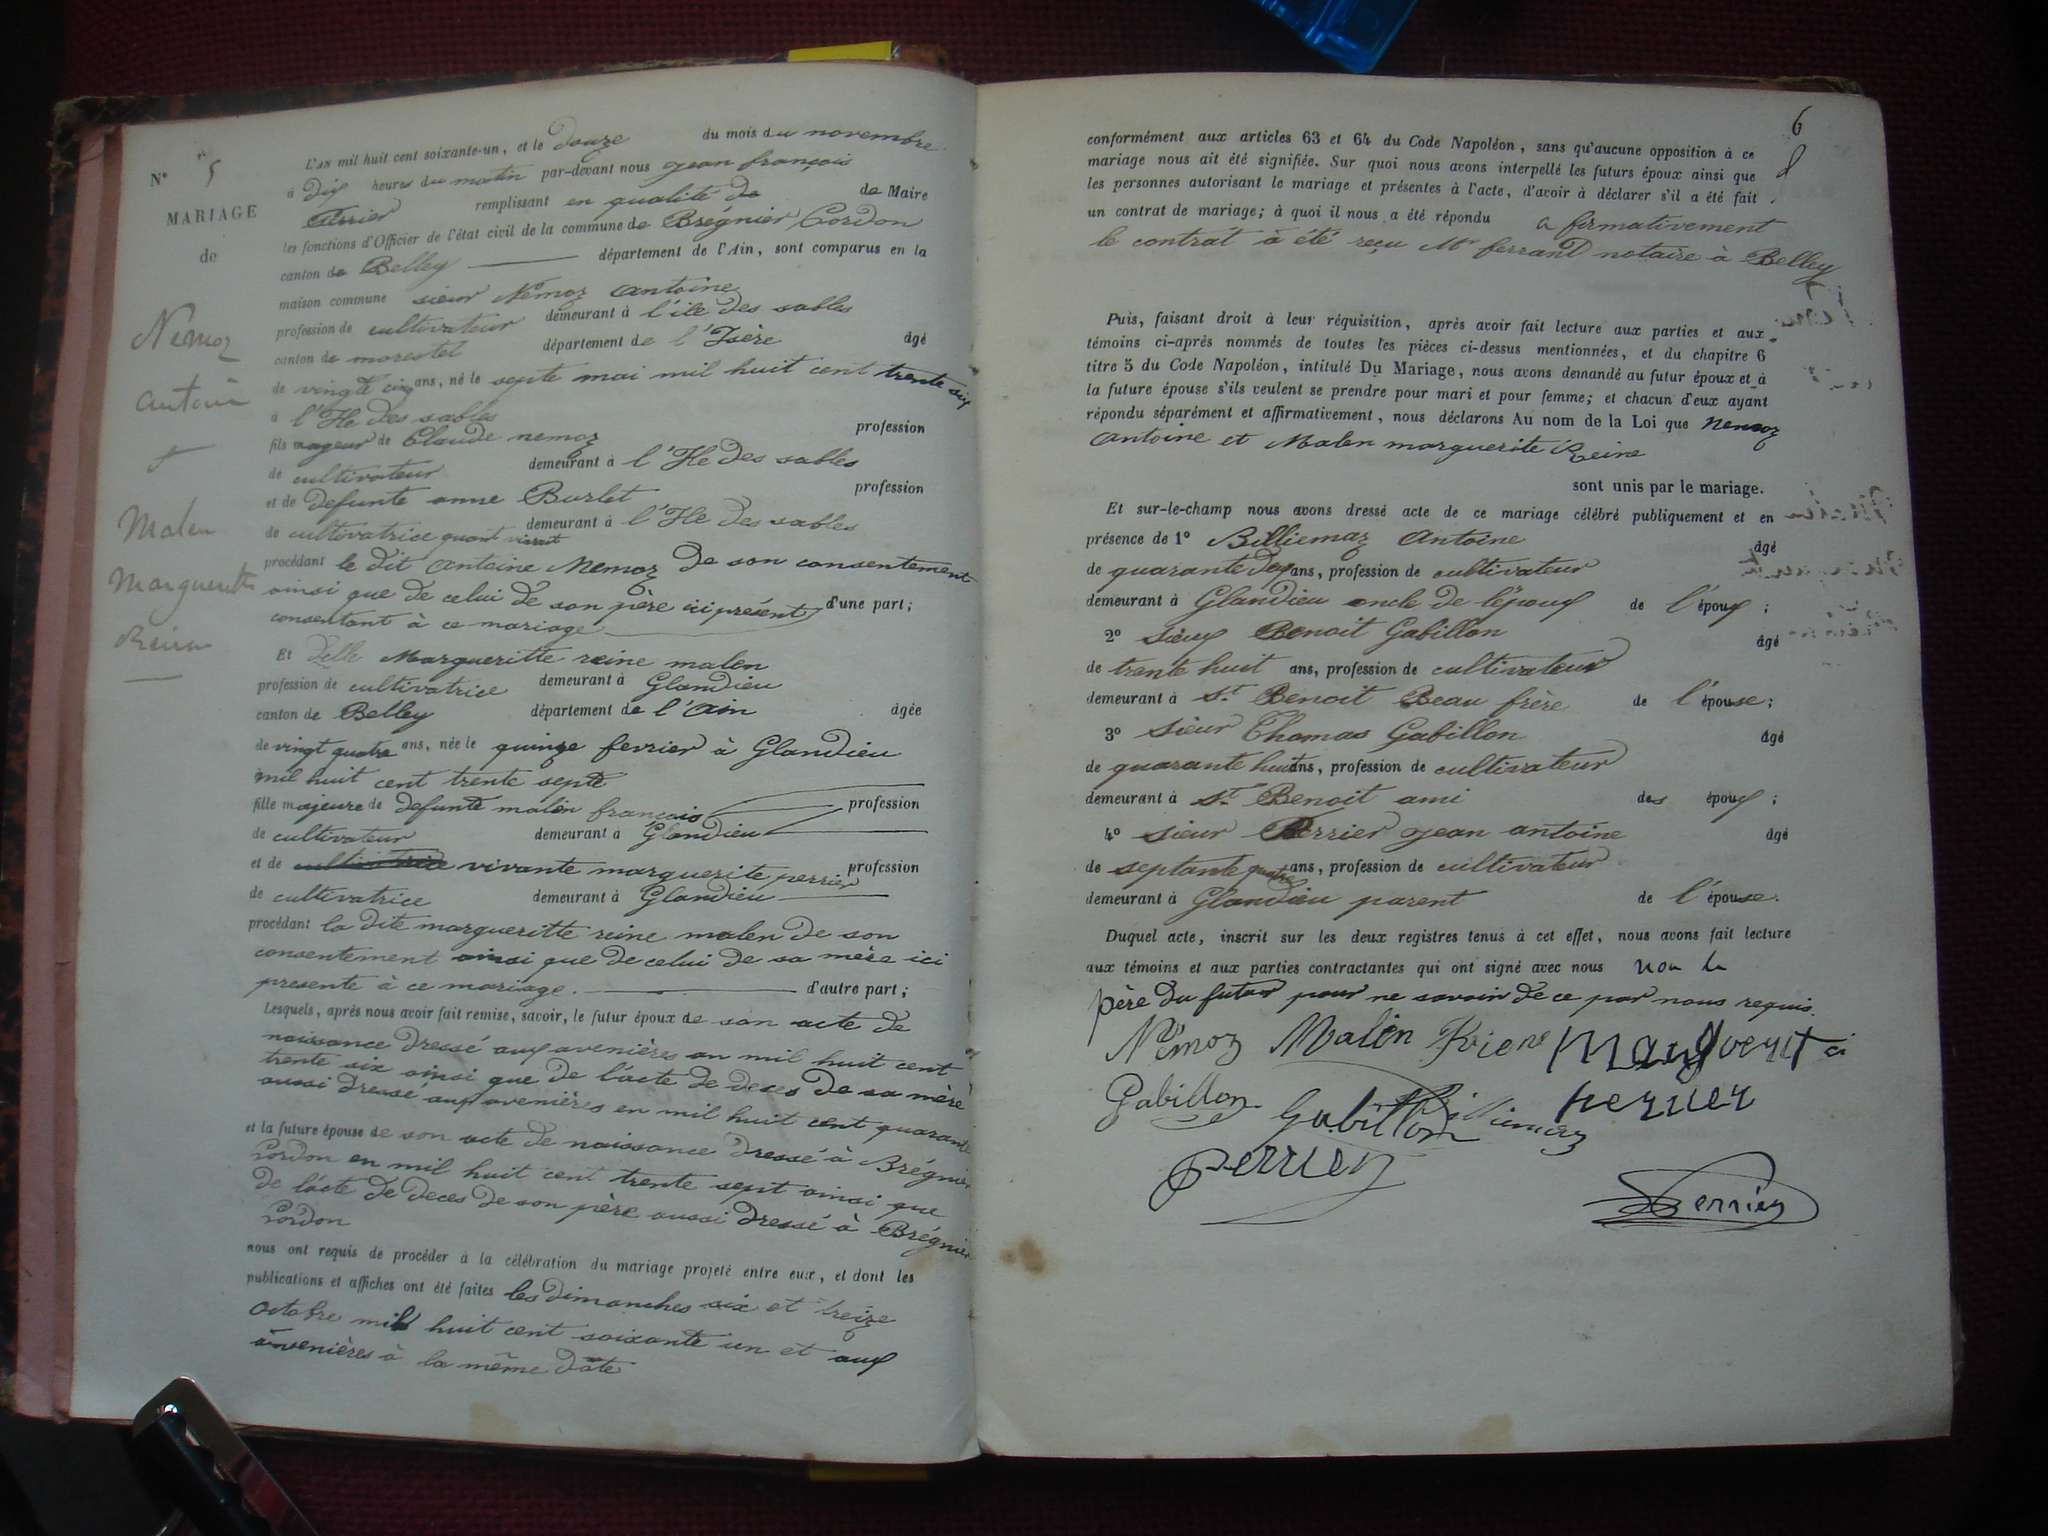 N° 5
MARIAGE
de
Nemoz
antoine
et
Malen
Marguerite
Reine
L'AN mil huit cent soixante-un, et le douze du mois du novembre
à dix heures du matin par-devant nous jean françois
Perrier remplissant en qualité de de Maire
les fonctions d'Officier de l'état civil de la commune de Brégnier Cordon
canton de Belley département de l'Ain, sont comparus en la
maison commune sieur Nemoz antoine
profession de cultivateur demeurant à l'ile des sables
canton de morestel département de l'Isère âgé
de vingt cinq ans, né le septe mai mil huit cent trente six
à l'Ile des sables
fils majeur de Claude nemoz profession
de cultivateur demeurant à l'Ile des sables
et de defunte anne Burlet profession
de cultivatrice quant vivait demeurant à l'Ile des sables
procédant le dit Antoine Nemoz de son consentement
ainsi que de celui de son père ici présent d'une part;
consentant à ce mariage
Et Delle Margueritte reine malen
profession de cultivatrice demeurant à Glandieu
canton de Belley département de l'Ain âgée
de vingt quatre ans, née le quinze fevrier à Glandieu
mil huit cent trente septe
fille majeure de defunte malen françois profession
de cultivateur demeurant à Glandieu
et de vivante marguerite perrier profession
de cultivatrice demeurant à Glandieu
procédant la dite margueritte reine malen de son
consentement ainsi que de celui de sa mère ici
presente à ce mariage. d'autre part;
Lesquels, après nous avoir fait remise, savoir, le futur époux de son acte de
naissance dressé aux avenières an mil huit cent
trente six ainsi que de l'acte de deces de sa mère
aussi dressé aux avenières en mil huit cent quarante
et la future épouse de son acte de naissance dressé à Brégnier
Cordon en mil huit cent trente sept ainsi que
de l'acte de deces de son père aussi dressé à Brégnier
Cordon
nous ont requis de procéder à la célébration du mariage projeté entre eux, et dont les
publications et affiches ont été faites les dimanches six et treize
octobre mil huit cent soixante un et aux
avenières à la même date
6
conformément aux articles 63 et 64 du Code Napoléon, sans qu'aucune opposition à ce
mariage nous ait été signifiée. Sur quoi nous avons interpellé les futurs époux ainsi que
les personnes autorisant le mariage et présentes à l'acte, d'avoir à déclarer s'il a été fait
un contrat de mariage; à quoi il nous a été répondu a firmativement
le contrat à été reçu Mr ferrand notaire à Belley
Puis, faisant droit à leur réquisition, après avoir fait lecture aux parties et aux
témoins ci-après nommés de toutes les pièces ci-dessus mentionnées, et du chapitre 6
titre 5 du Code Napoléon, intitulé Du Mariage, nous avons demandé au futur époux et à
la future épouse s'ils veulent se prendre pour mari et pour femme; et chacun d'eux ayant
répondu séparément et affirmativement, nous déclarons Au nom de la Loi que Nemoz
Antoine et Malen marguerite Reine
sont unis par le mariage.
Et sur-le-champ nous avons dressé acte de ce mariage célébré publiquement et en
présence de 1° Billiemaz Antoine âgé
de quarante dex ans, profession de cultivateur
demeurant à Glandieu oncle de l'époux de l'époux;
2° sieur Benoit Gabillon âgé
de trente huit ans, profession de cultivateur
demeurant à St Benoit Beau frère de l'épouse;
3° sieur Thomas Gabillon âgé
de quarante huit ans, profession de cultivateur
demeurant à St Benoit ami des époux;
4° sieur Perrier jean antoine âgé
de septante quatre ans, profession de cultivateur
demeurant à Glandieu parent de l'épouse.
Duquel acte, inscrit sur les deux registres tenus à cet effet, nous avons fait lecture
aux témoins et aux parties contractantes qui ont signé avec nous non le
père du futur pour ne savoir de ce par nous requis.
Nemoz Malen
Gabillon Gabillon Billiemaz perrier
Perrier
Perrier